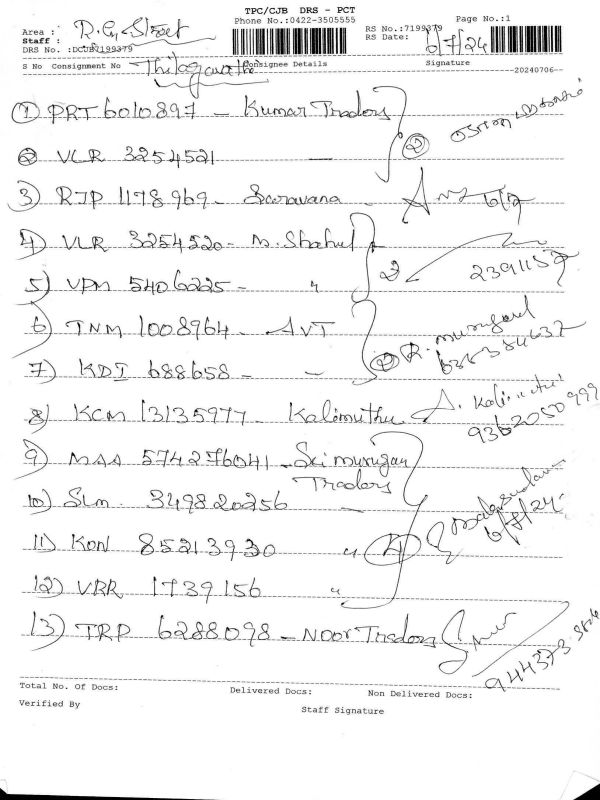 TPC/CJB DRS - PCT
Phone No.:0422-3505555
Page No.:1
Area : R.G. Street
RS No.:7199379
Staff :
RS Date: 6/7/24
DRS No. :DCJB7199379
S No Consignment No Consignee Details Signature
Thilagavathi
20240706
1) PRT 6010897 - Kumar Traders
2) VLR 3254521 - 2
3) RJP 1178969 - Saravana - 6/7
4) VLR 3254520 - M. Shahul
5) VPM 5406225 - " 2
6) TNM 1008964 - AVT
7) KDI 688658 - - 2 R. Murugavel
8) KCM 13135977 - Kalimuthu A. Kalimuthu
9) MAA 574276041 - Sri murugan Traders
10) SLM 349820256
11) KON 85213930 " 4 6/7/24
12) VRR 1739156 "
13) TRP 6288098 - Noor Traders
Total No. Of Docs: Delivered Docs: Non Delivered Docs:
Verified By Staff Signature